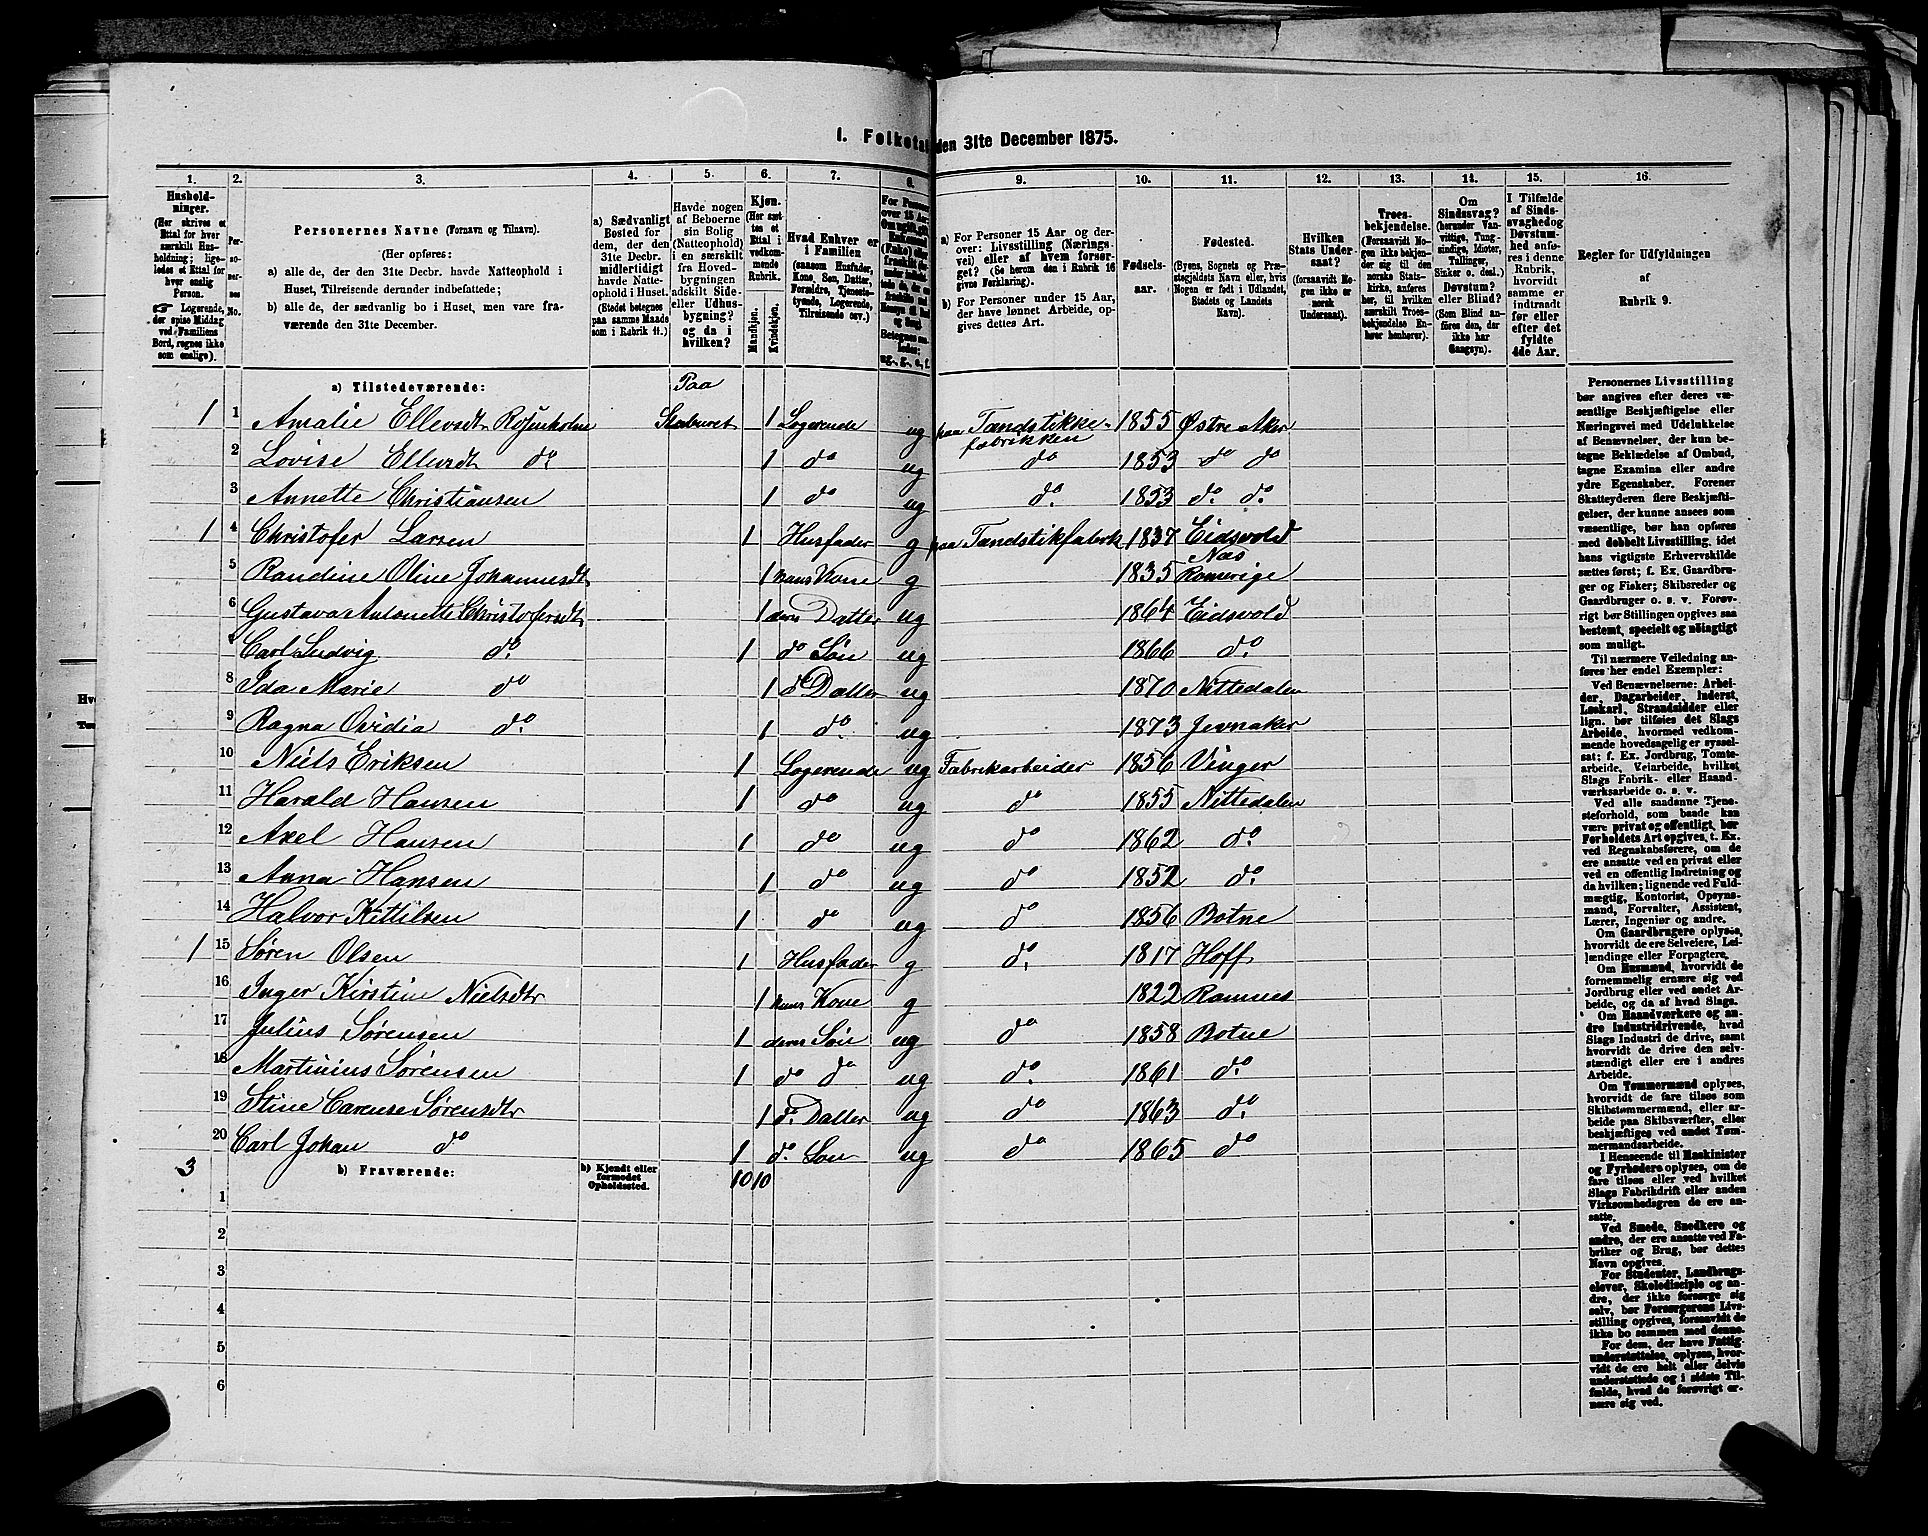 1. Folketal den 31te December 1875.
1. 2. 3. 4. 5. 6. 7. 8. 9. 10. 11. 12. 13. 14. 15. 16.
Hushold-
ninger.
(Her skrives et
Ettal for hver
særskilt Hus-
holdning; lige-
ledes et Ettal for
hver enslig
Person.
☞ Logerende,
der spise Middag
ved Familiens
Bord, regnes ikke
som enslige).
Per-
so-
ner-
nes
No.
Personernes Navne (Fornavn og Tilnavn).
(Her opføres:
a) alle de, der den 31te Decbr. havde Natteophold i
Huset, Tilreisende derunder indbefattede;
b) alle de, der sædvanlig bo i Huset, men vare fra-
værende den 31te December.
a) Sædvanligt
Bosted for
dem, der den
31te Decbr.
midlertidigt
havde Natte-
ophold i Huset.
(Stedet betegnes
paa samme Maade
som i Rubrik 11.)
Havde nogen
af Beboerne
sin Bolig
(Natteophold)
i en særskilt
fra Hoved-
bygningen
adskilt Side-
eller Udhus-
bygning?
og da i
hvilken?
Kjøn.
(Her sæt-
tes et
Ettal i
vedkom-
mende
Rubrik.
Mandkjøn.
Kvindekjøn.
Hvad Enhver er
i Familien
(saasom Husfader,
Kone, Søn, Datter,
Forældre, Tjeneste-
tyende, Logerende,
Tilreisende osv.)
For Personer
over 15 Aar:
Betegnes saa-
ledes:
ug., g., e., f.
a) For Personer 15 Aar og der-
over: Livsstilling (Nærings-
vei) eller af hvem forsør-
get? (Se herom den i Rubrik 16
givne Forklaring).
b) For Personer under 15 Aar,
der have lønnet Arbeide, op-
gives dettes Art.
Fødsels-
aar.
Fødested.
(Byens, Sognets og Præ-
stegjeldets Navn eller, hvis
Nogen er født i Udlandet,
Stedets og Landets
Navn).
Hvilken
Stats Under-
saat?
(forsaavidt No-
gen ikke er
norsk
Undersaat).
Troes-
bekjendelse.
(Forsaavidt No-
gen ikke bekjen-
der sig til den
norske Stats-
kirke, anføres
her, til hvilken
særskilt Troes-
bekjendelse En-
hver henhører).
Om
Sindssvag?
(herunder Van-
vittige, Tung-
sindige, Idioter,
Tullinger,
Sinker o. desl.)
Døvstum?
eller Blind?
(Som Blind an-
føres den, der
ikke har
Gangsyn).
I Tilfælde
af Sinds-
svaghed og
Døvstum-
hed anfø-
res i denne
Rubrik,
hvorvidt
samme er
indtraadt
før eller
efter det
fyldte
4de Aar.
Regler for Udfyldningen
af
Rubrik 9.
a) Tilstedeværende: Paa
1 1 Amalie Ellevsdt Rosenholm Stabburet 1 Logerende ug paa Tændstikke- 1855 Østre Aker
fabrikken
2 Lovise Ellevsdt do 1 do ug do 1853 do do
3 Annette Christiansen 1 do ug do. 1853 do. do.
1 4 Christofer Larsen 1 Husfader g paa Tændstikfabrik 1837 Eidsvold
5 Randine Oline Johannesdt 1 hans Kone g 1835 Næs
Romerige
6 Gustava Antonette Christofersdt 1 deres Datter ug 1864 Eidsvold
7 Carl Ludvig do. 1 do Søn ug 1866 do.
8 Ida Marie do 1 do Datter ug 1870 Nittedalen
9 Ragna Ovidia do. 1 do. ug 1873 Jevnaker
10 Niels Eriksen 1 Logerende ug Fabrikarbeider 1856 Vinger
11 Harald Hansen 1 do ug do 1855 Nittedalen
12 Axel Hansen 1 do ug do 1862 do.
13 Anna Hansen 1 do ug do 1852 do.
14 Halvor Kittilsen 1 do ug do 1856 Botne
1 15 Søren Olsen 1 Husfader g do. 1817 Hoff
16 Inger Kirstine Nielsdtr 1 hans Kone g 1822 Ramnes
17 Julius Sørensen 1 deres Søn ug do 1858 Botne
18 Martinius Sørensen 1 do do ug do. 1861 do.
19 Stine Carense Sørensdtr 1 do. Datter ug do 1863 do.
20 Carl Johan do 1 do. Søn ug do 1865 do
3 b) Fraværende: b) Kjendt eller
formodet
Opholdssted. 10 10
1
2
3
4
5
6
Personernes Livsstilling
bør angives efter deres væ-
sentlige Beskjæftigelse eller
Næringsvei med Udelukkelse
af Benævnelser, der kun be-
tegne Beklædelse af Ombud,
tagne Examina eller andre
ydre Egenskaber. Forener
Skatteyderen flere Beskjæfti-
gelser, der kunne ansees som
væsentlige, bør han opføres
med dobbelt Livsstilling, idet
hans vigtigste Erhvervskilde
sættes først; f. Ex. Gaardbru-
ger og Fisker; Skibsreder og
Gaardbruger o. s. v. Forøv-
rigt bør Stillingen opgives saa
bestemt, specielt og nøiagtigt
som muligt.
Til nærmere Veiledning an-
føres her endel Exempler:
Ved Benævnelserne: Arbei-
der, Dagarbeider, Inderst,
Løskarl, Strandsidder eller
lign. bør tilføies det Slags
Arbeide, hvormed vedkom-
mende hovedsagelig er syssel-
sat; f. Ex. Jordbrug, Tomte-
arbeide, Veiarbeide, hvilket
Slags Fabrik- eller Haand-
værksarbeide o. s. v.
Ved alle saadanne Tjene-
steforhold, som baade kan
være privat og offentligt, bør
Forholdets Art opgives, t. Ex.
ved Regnskabsførere, om de
ere ansatte ved en privat eller
ved en offentlig Indretning og
da hvilken; lignende ved Fuld-
mægtig, Kontorist, Opsyns-
mand, Forvalter, Assistent,
Lærer, Ingeniør og andre.
Om Gaardbrugere oplyses,
hvorvidt de ere Selveiere, Lei-
lændinge eller Forpagtere.
Om Husmænd, hvorvidt de
fornemmelig ernære sig ved
Jordbrug eller ved andet Ar-
beide, og da af hvad Slags.
Om Haandværkere og an-
dre Industridrivende, hvad
Slags Industri de drive, samt
hvorvidt de drive den selv-
stændigt eller ere i andres
Arbeide.
Om Tømmermænd oplyses,
hvorvidt de fare tilsøs som
Skibstømmermænd, eller ar-
beide paa Skibsværfter, eller
beskjæftiges ved andet Tøm-
mermandsarbeide.
I Henseende til Maskinister
og Fyrbødere oplyses, om de
fare tilsøs eller ved hvilket
Slags Fabrikdrift eller anden
Virksomhedsgren de ere an-
satte.
Ved Smede, Snedkere og
andre, der ere ansatte ved Fa-
briker og Brug, bør dettes
Navn opgives.
For Studenter, Landbrugs-
elever, Skoledisciple og an-
dre, der ikke forsørge sig
selv, bør Forsørgerens Livs-
stilling opgives, forsaavidt de
ikke bo sammen med denne.
For dem, der have Fattig-
understøttelse, oplyses, hvor-
vidt de ere helt eller delvis
understøttede og i sidste Til-
fælde, hvad de forøvrigt er-
nære sig ved.